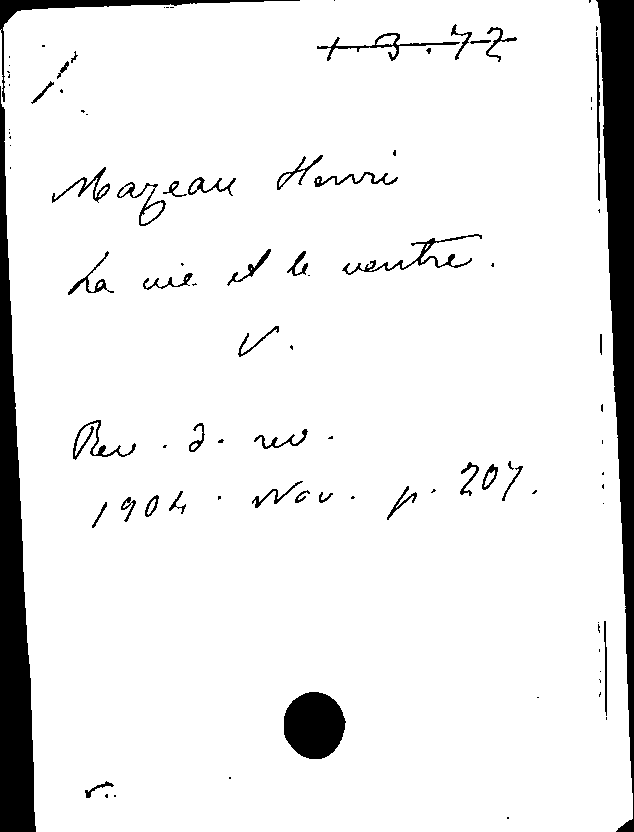 1.3.72
Mazeau Henri
La vie et le ventre.
V.
Rev. d. rev.
1904. Nov. p. 207.